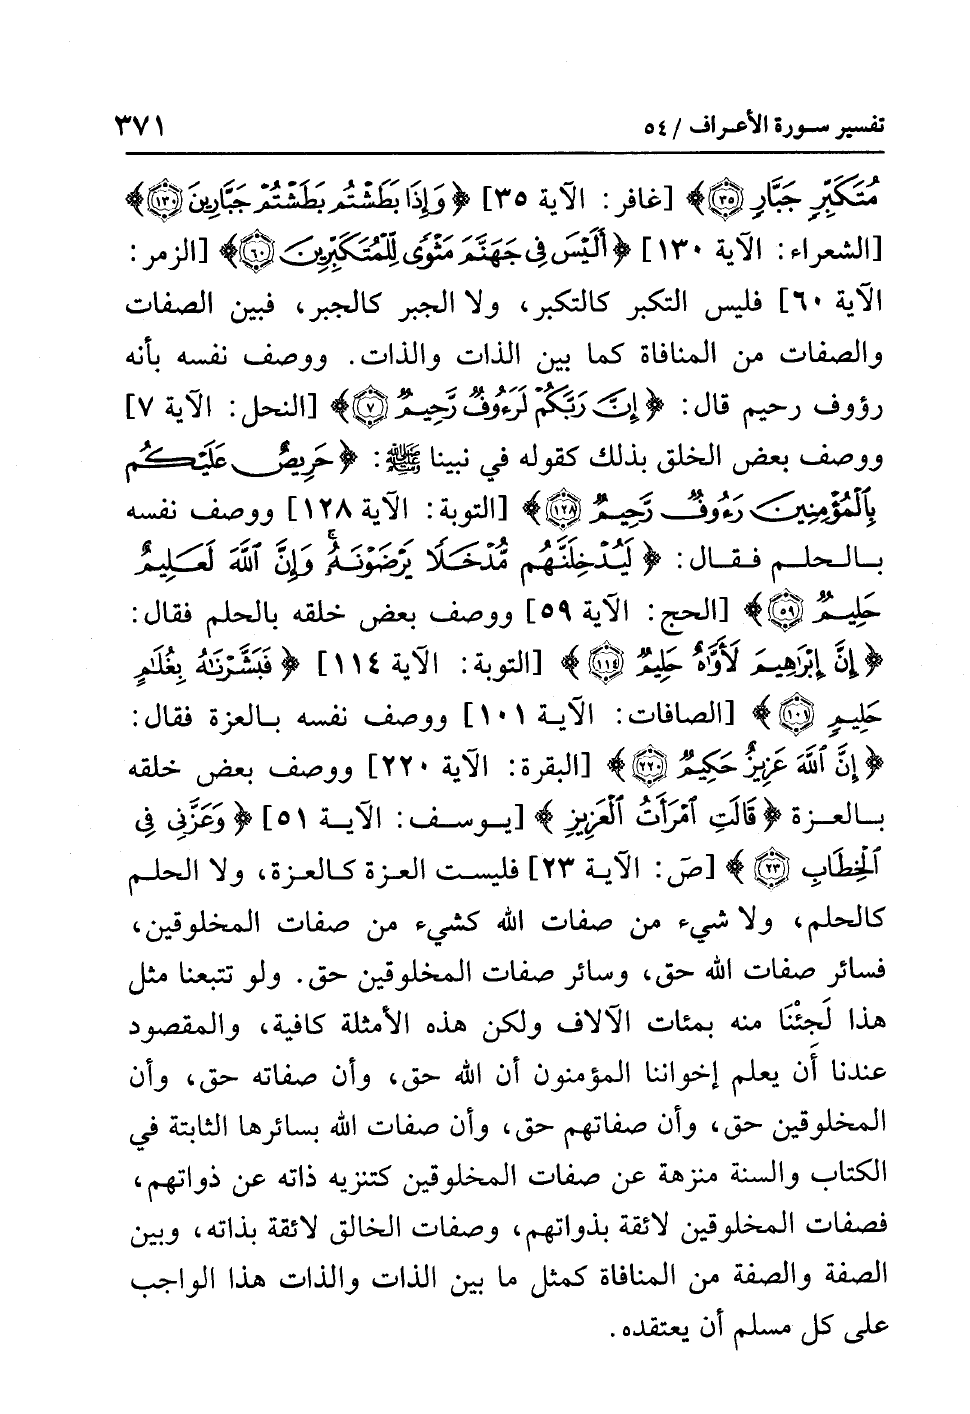 تفسير سورة الأعراف / ٥٤ ٣٧١
مُتَكَبِّرٍ جَبَّارٍ ﴿٣٥﴾ [غافر: الآية ٣٥] ﴿وَإِذَا بَطَشْتُم بَطَشْتُمْ جَبَّارِينَ ﴿١٣٠﴾
[الشعراء: الآية ١٣٠] ﴿أَلَيْسَ فِي جَهَنَّمَ مَثْوًى لِّلْمُتَكَبِّرِينَ ﴿٦٠﴾ [الزمر:
الآية ٦٠] فليس التكبر كالتكبر، ولا الجبر كالجبر، فبين الصفات
والصفات من المنافاة كما بين الذات والذات. ووصف نفسه بأنه
رؤوف رحيم قال: ﴿إِنَّ رَبَّكُمْ لَرَءُوفٌ رَّحِيمٌ ﴿٧﴾ [النحل: الآية ٧]
ووصف بعض الخلق بذلك كقوله في نبينا ﷺ: ﴿حَرِيصٌ عَلَيْكُم
بِٱلْمُؤْمِنِينَ رَءُوفٌ رَّحِيمٌ ﴿١٢٨﴾ [التوبة: الآية ١٢٨] ووصف نفسه
بالحلم فقال: ﴿لَيُدْخِلَنَّهُم مُّدْخَلًا يَرْضَوْنَهُۥۚ وَإِنَّ ٱللَّهَ لَعَلِيمٌ
حَلِيمٌ ﴿٥٩﴾ [الحج: الآية ٥٩] ووصف بعض خلقه بالحلم فقال:
﴿إِنَّ إِبْرَٰهِيمَ لَأَوَّٰهٌ حَلِيمٌ ﴿١١٤﴾ [التوبة: الآية ١١٤] ﴿فَبَشَّرْنَٰهُ بِغُلَٰمٍ
حَلِيمٍ ﴿١٠١﴾ [الصافات: الآية ١٠١] ووصف نفسه بالعزة فقال:
﴿إِنَّ ٱللَّهَ عَزِيزٌ حَكِيمٌ ﴿٢٢٠﴾ [البقرة: الآية ٢٢٠] ووصف بعض خلقه
بالعزة ﴿قَالَتِ ٱمْرَأَتُ ٱلْعَزِيزِ﴾ [يوسف: الآية ٥١] ﴿وَعَزَّنِي فِي
ٱلْخِطَابِ ﴿٢٣﴾ [صَ: الآية ٢٣] فليست العزة كالعزة، ولا الحلم
كالحلم، ولا شيء من صفات الله كشيء من صفات المخلوقين،
فسائر صفات الله حق، وسائر صفات المخلوقين حق. ولو تتبعنا مثل
هذا لَجِئْنَا منه بمئات الآلاف ولكن هذه الأمثلة كافية، والمقصود
عندنا أن يعلم إخواننا المؤمنون أن الله حق، وأن صفاته حق، وأن
المخلوقين حق، وأن صفاتهم حق، وأن صفات الله بسائرها الثابتة في
الكتاب والسنة منزهة عن صفات المخلوقين كتنزيه ذاته عن ذواتهم،
فصفات المخلوقين لائقة بذواتهم، وصفات الخالق لائقة بذاته، وبين
الصفة والصفة من المنافاة كمثل ما بين الذات والذات هذا الواجب
على كل مسلم أن يعتقده.